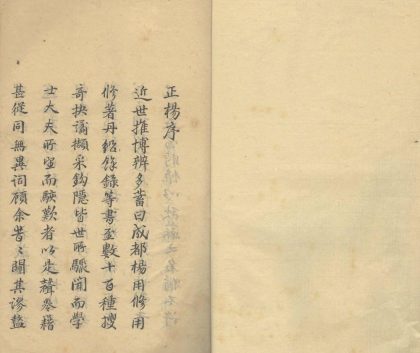 正楊序
近世推博辨多蓄曰成都楊用修用
修著丹鉛餘錄等書至數十百種搜
奇抉譎擷采鈎隱皆世所驟聞而學
士大夫所望而駴歎者以是聲叅藉
甚從同無異詞顧余嘗〻闚其謬盭